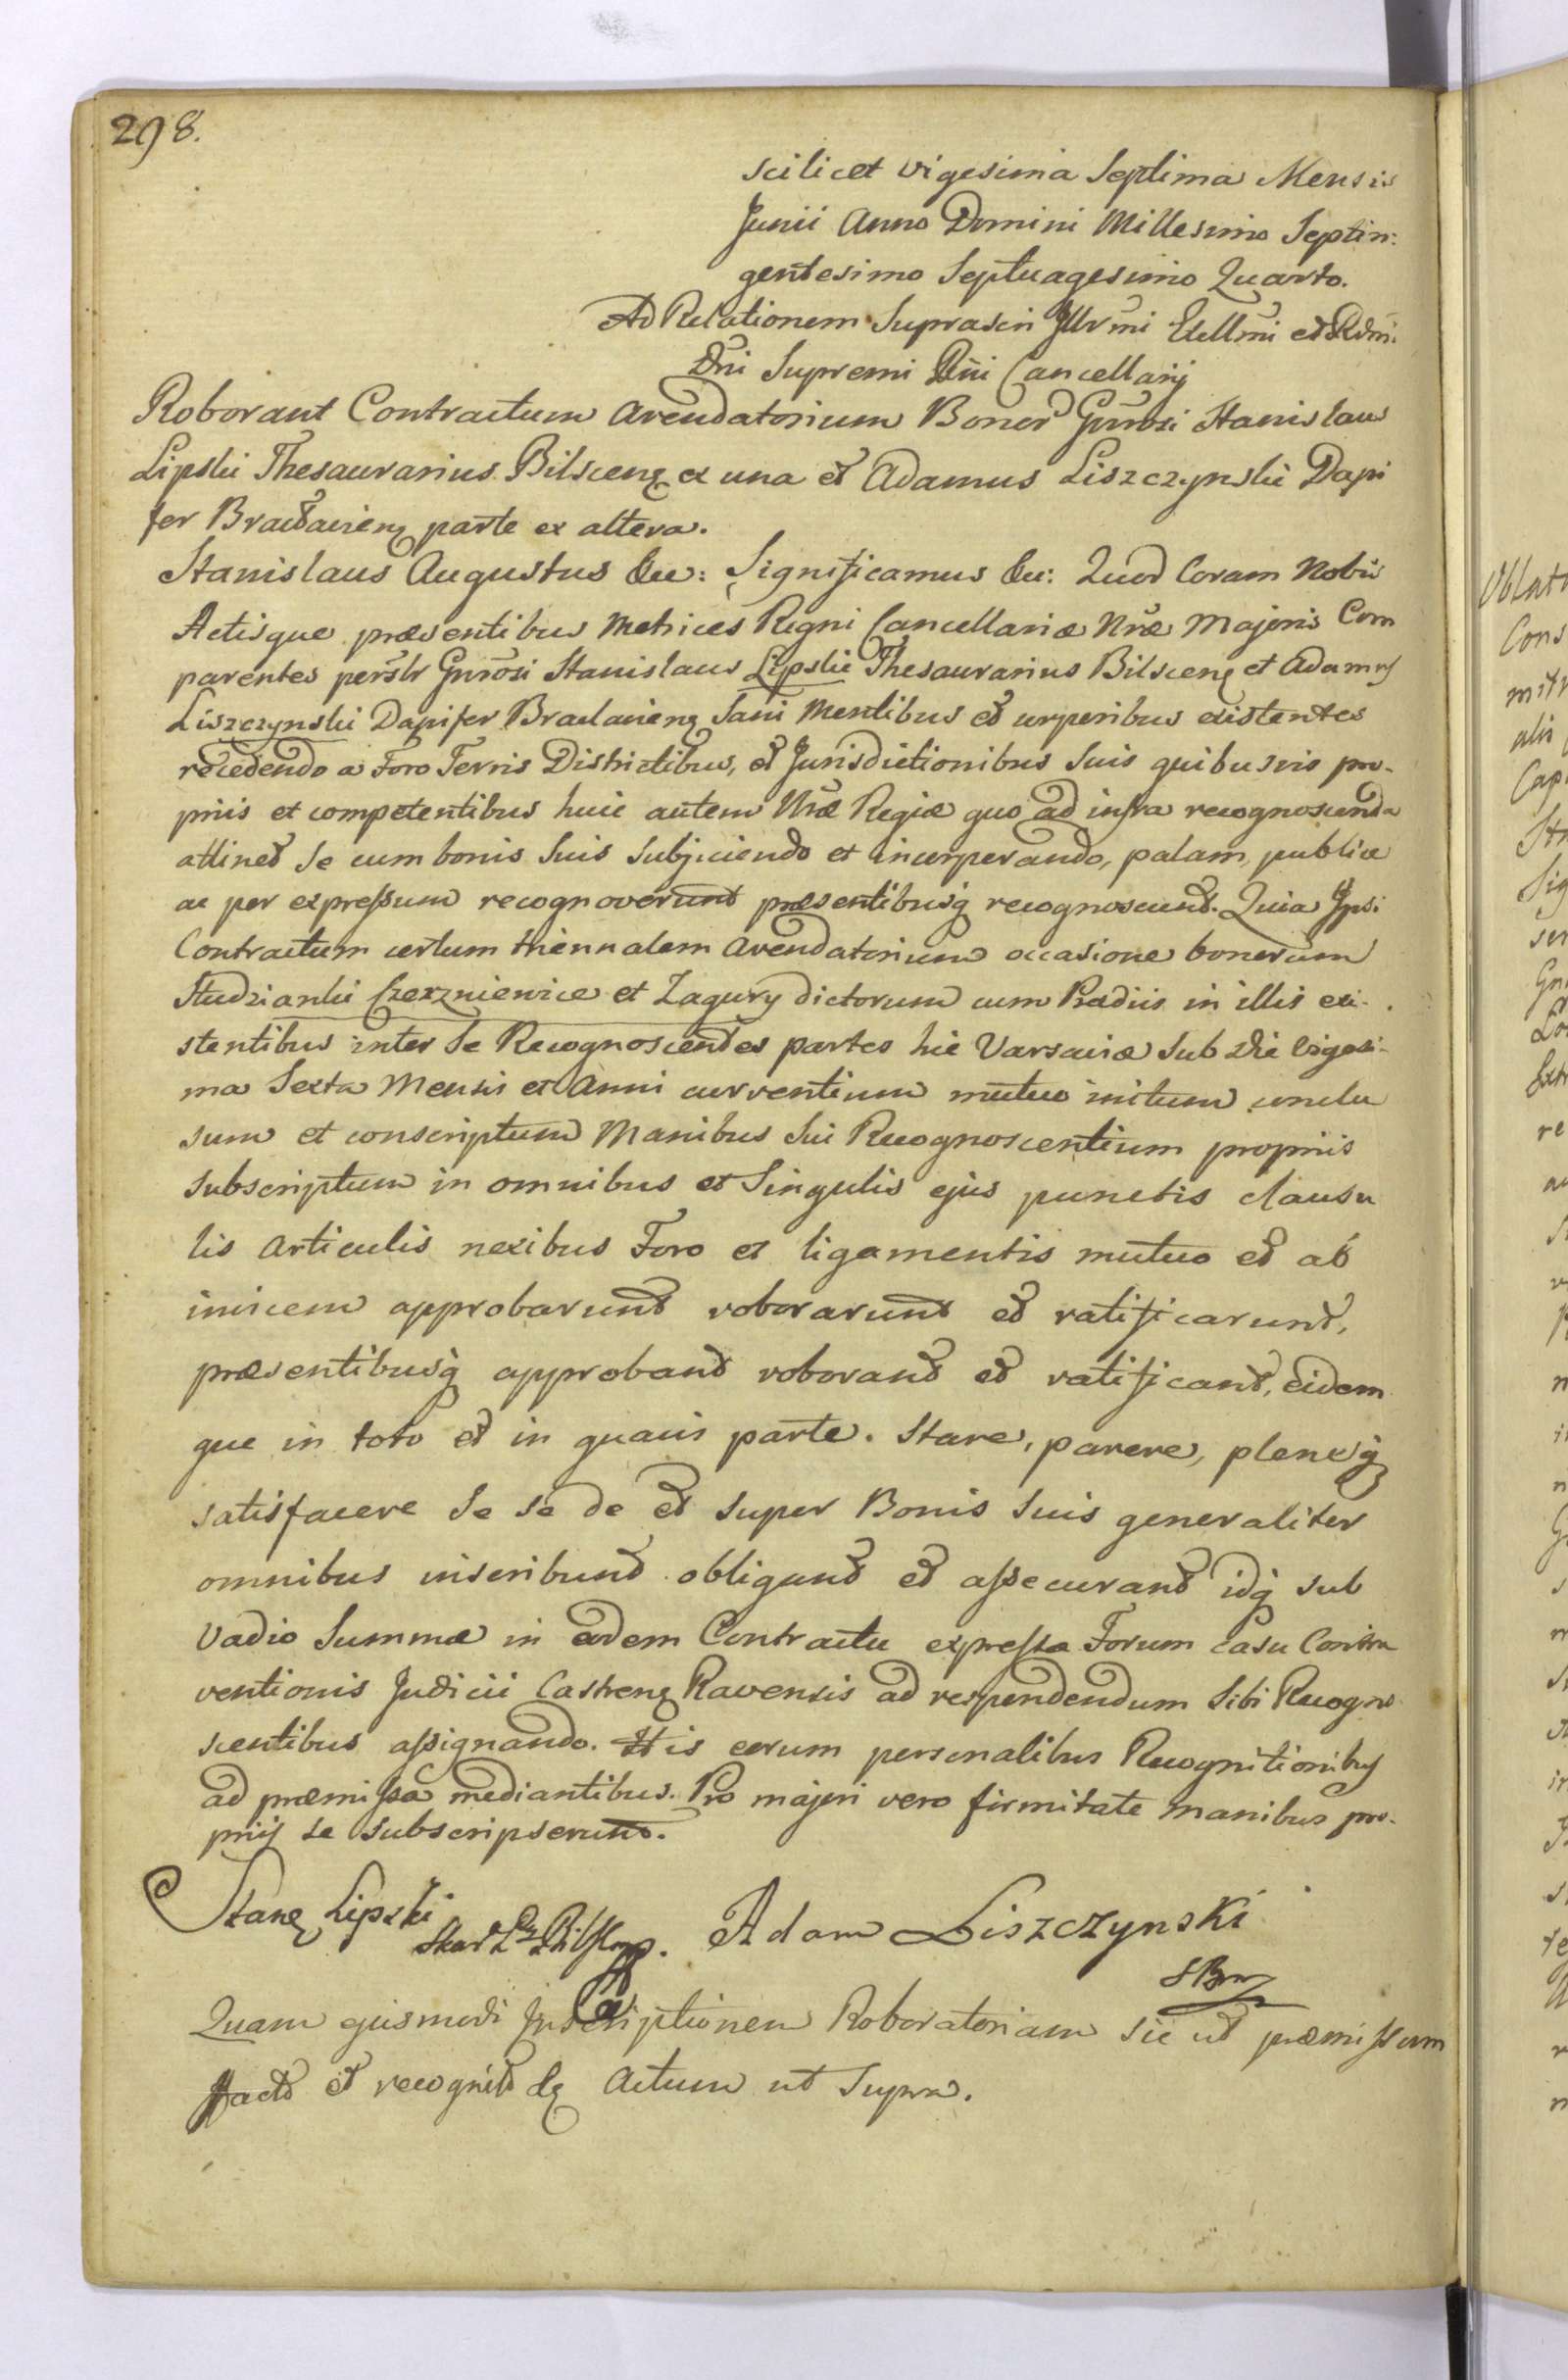 298.
scilicet vigesima Septima Mensis
Junii Anno Domini Millesimo Septin:
gentesimo Septuagesimo Quarto.
Ad Relationem Suprascri Illrmi Exellmi et Rdmi.
Dni Supremi Rni Cancellarij
Roborant Contractum arendatorium Bonor Gnrosi Stanislaus
Lipski Thesaurarius Bilscen ex una et Adamus Liszczynski Dapi
fer Braclavien parte ex altera.
Stanislaus Augustus &c: Significamus &c: Quod Coram Nobis
Actisque præsentibus Metrices Regni Cancellariæ Nræ Majoris Com
parentes persltr Gnrosi Stanislaus Lipski Thesaurarius Bilscen et Adamus
Liszczynski Dapifer Braclavien Sani Mentibus et corporibus existentes
recedendo a Foro Terris Districtibus, et Jurisdictionibus Suis quibusvis pro-
priis et competentibus huic autem Nræ Regiæ quo ad infra recognoscenda
attinet Se cum bonis Suis Subjiciendo et incorporando, palam, publice
ac per expressum recognoverunt præsentibusq recognoscunt. Quia Ipsi
Contractum certum triennalem Arendatorium occasione bonorum
Studzianki Czerzniewice et Zagury dictorum cum Prædiis in illis exi-
stentibus inter Se Recognoscentes partes hic Varsaviæ Sub die Vigesi-
ma Sexta Mensis et Anni currentium mutuo initum conclu
sum et conscriptum Manibus Sui Recognoscentium propriis
Subscriptum in omnibus et Singulis ejus punctis clausu
lis articulis nexibus Foro et ligamentis mutuo et ab
invicem approbarunt roborarunt et ratificarunt,
præsentibusq approbant roborant et ratificant, eidem
que in toto et in quavis parte. Stare, parere, pleneq
satisfacere Se Se de et super Bonis Suis generaliter
omnibus inscribunt obligant et assecurant idq sub
Vadio Summæ in eodem Contractu expressæ Forum casu Contra
ventionis Judicii Castren Ravensis ad respondendum Sibi Recogno
scentibus assignando. His eorum personalibus Recognitionibus
ad præmissa mediantibus. Pro majori vero firmitate Manibus pro-
prijs se subscripserunt.
Stan Lipski Adam Liszczynski
Quam ejusmodi Inscriptionem Roboratoriam sic ut præmissum
fact et recognit e Actum ut Supra.